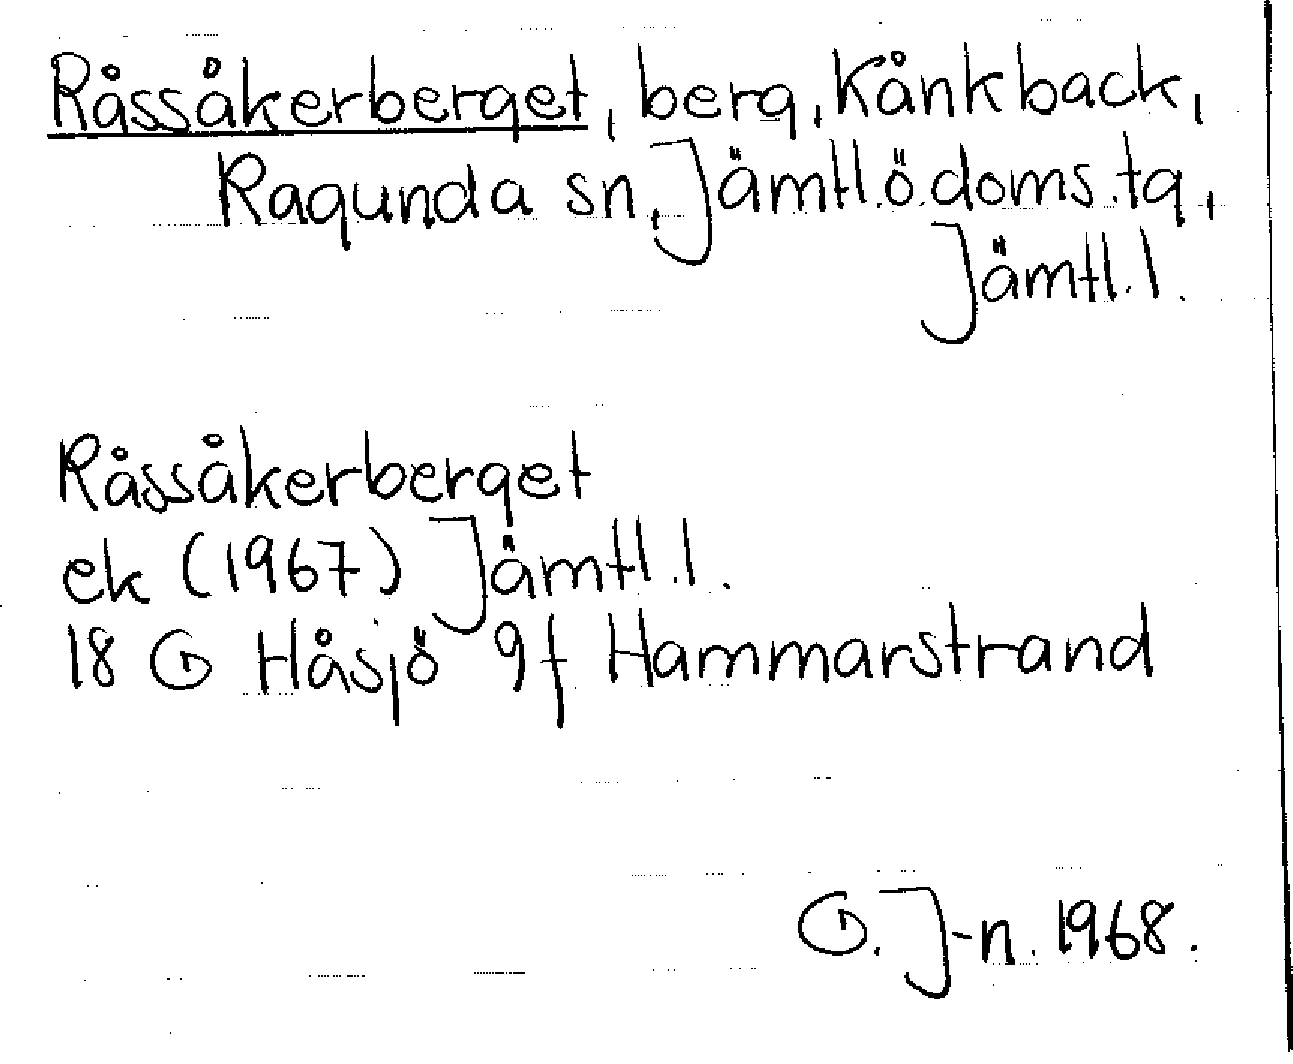 Råssåkerberget, berg, Kånkback,
Ragunda sn, Jämtl.ö.doms.tg,
Jämtl.l.
Råssåkerberget
ek (1967) Jämtl.l.
18 G Håsjö 9f Hammarstrand
G. J-n. 1968.